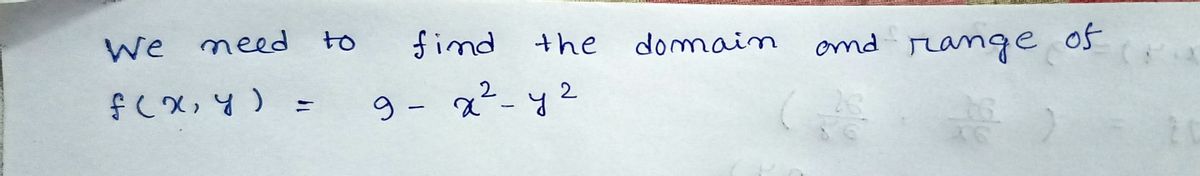 We need to find the domain and range of
f(x, y) = 9 - x² - y²